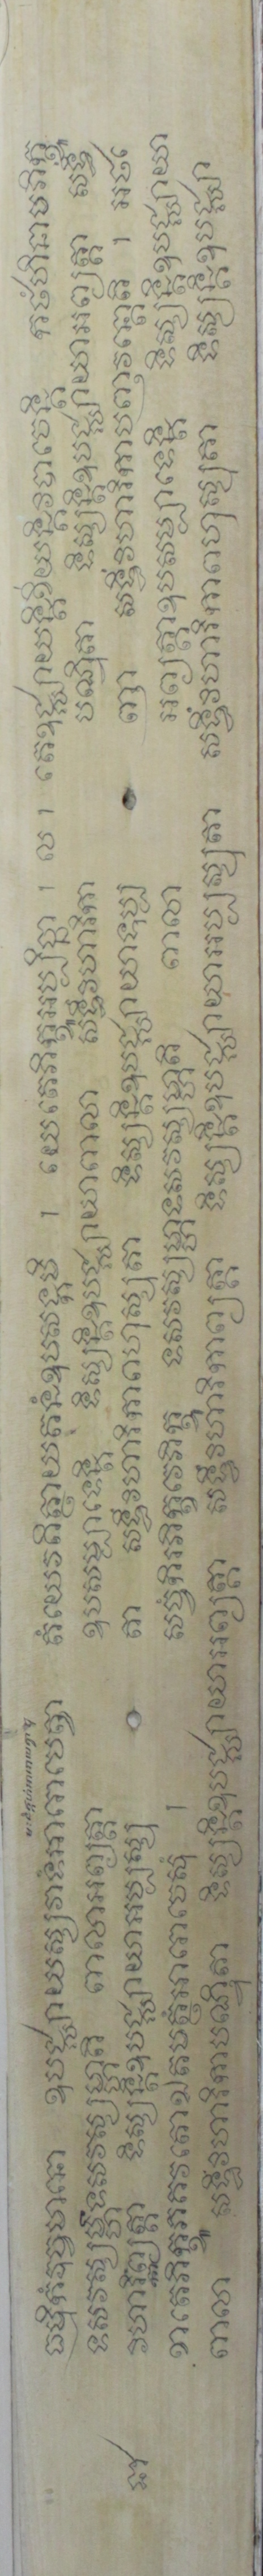 ធម្មិកំបុច្ឆមានោ ឧបជ្ឈាយស្សវាទំអារោចេត្វា តំយេវពិត្ថាយតនំឧបសង្កមិ ។ យេតេភិក្ខូអប្បិច្ឆា ។ ល ។ តេឧជ្ឈាយន្តិខីយន្តិវិបាចេន្តិ កថំហិនាមភិក្ខូ
ទសវស្សម្ហាទសវស្សម្ហាតិ ពាលាអព្យត្តា ឧបសម្បាទេន្តិ ទិស្សន្តិឧបជ្ឈាយាពាលា សទ្ធិវិហារិកា បណ្ឌិតា ទិស្សន្តិឧបជ្ឈាយាអព្យត្តា សទ្ធិ
វិហារិកាព្យត្តា ទិស្សន្តិឧបជ្ឈាយាអប្បស្សុ តា សទ្ធិវិហារិកាពហុស្សុតា ទិស្សន្តិឧបជ្ឈាយាទុប្ប ញា សទ្ធិវិហារិកាបញ្ញវន្តោតិ ។ អថខោ
តេភិក្ខូភគវតោឯតមត្ថំអារោចេសុំ ។ សច្ចំកិរភិក្ខវេភិក្ខូ ទសវស្សម្ហាទសវស្សម្ហាតិ ពាលា អព្យត្តាឧបសម្បាទេន្តិ ទិស្សន្តិឧបជ្ឈាយា
ពាលា សទ្ធិវិហារិកាបណ្ឌិតា ទិស្សន្តិឧបជ្ឈាយាអព្យត្តា សទ្ធិវិហារិកាព្យត្តា ទិស្សន្តិឧបជ្ឈាយាអប្បស្សុតា សទ្ធិវិហារិកាពហុស្សុតា ទិស្សន្តិឧបជ្ឈា